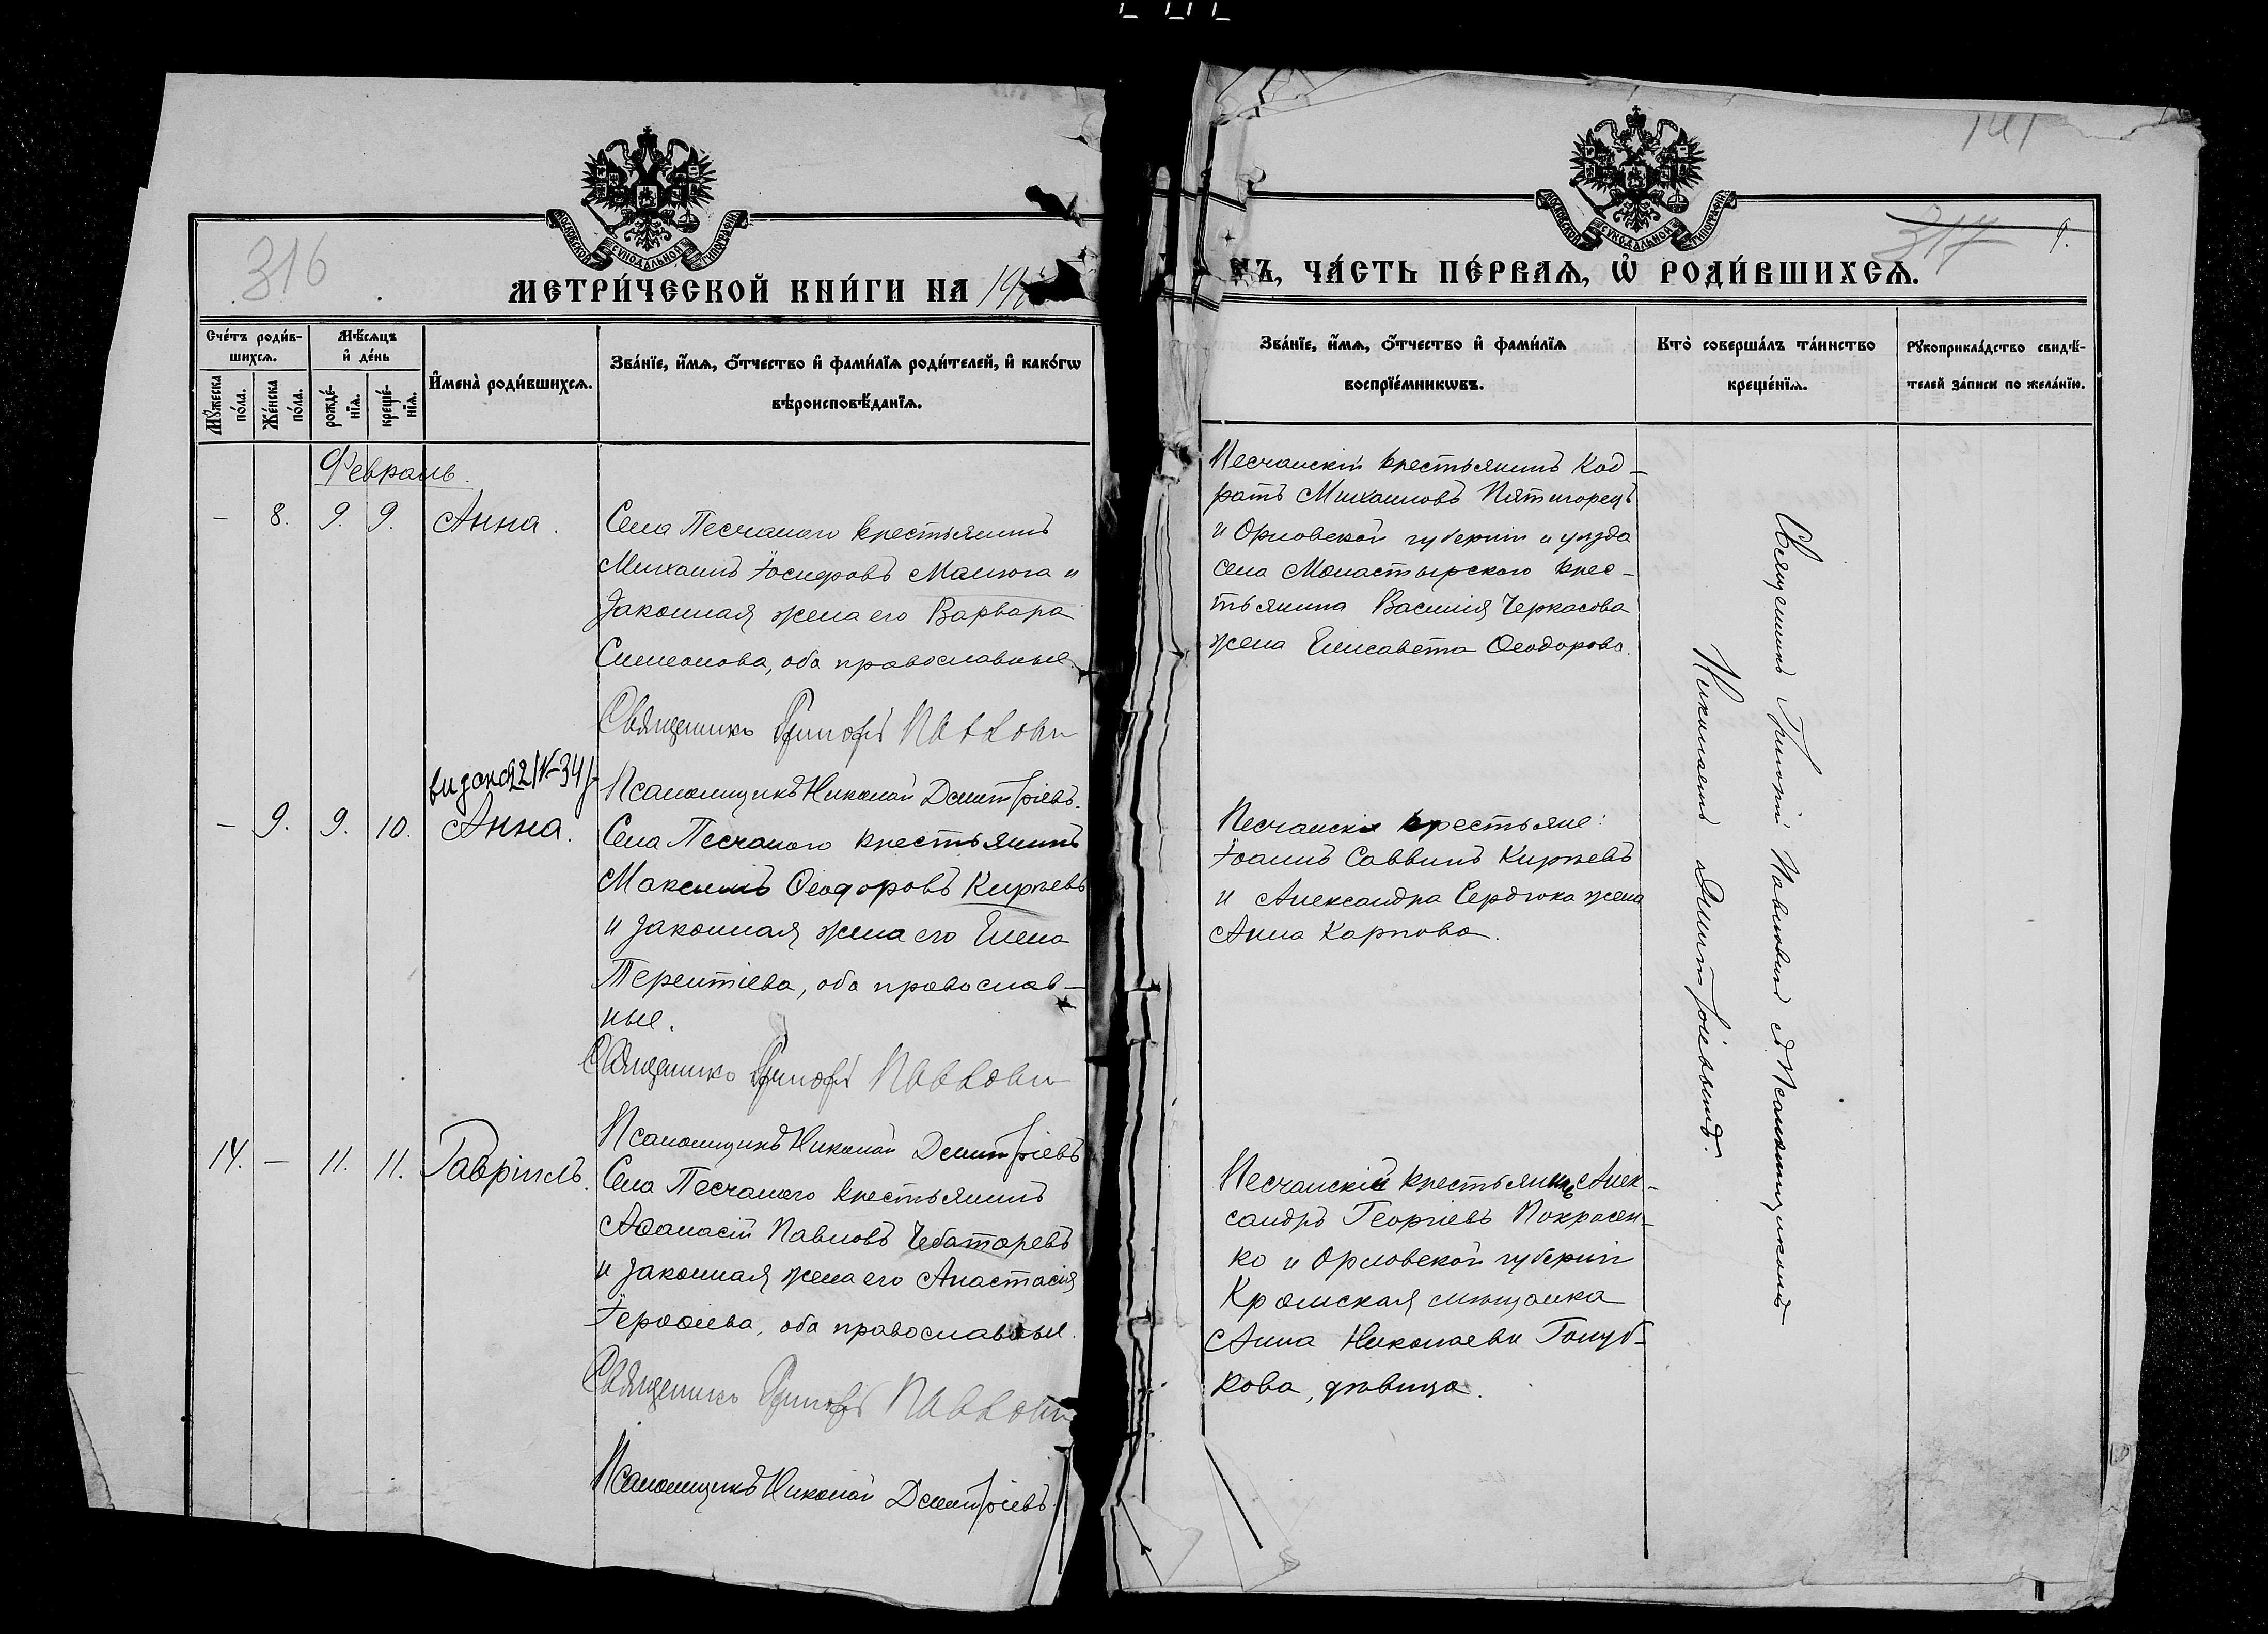 316
МОСКОВСКОЙ СѴНОДАЛЬНОЙ ТИПОГРАФІИ
МЕТРИ́ЧЕСКОЙ КНИ́ГИ НА 19
Сче́тъ роди́в-
шихсѧ.
Мꙋ́жеска по́ла.
Же́нска по́ла.
Мѣ́сѧцъ и҆ де́нь
рожде́-нїѧ.
креще́-нїѧ.
И҆мена̀ роди́вшихсѧ.
Зва́нїе, и҆́мѧ, ѻ҆́тчество и҆ фами́лїѧ роди́телей, и҆ како́гѡ
вѣроисповѣ́данїѧ.
Февраль.
– 8. 9. 9. Анна.
Села Песчаного крестьянинъ
Михаилъ Іосифовъ Манюга и
законная жена его Варвара
Симеонова, оба православные.
Священникъ Григорій Павловъ
Псаломщикъ Николай Дмитріевъ.
– 9. 9. 10. Анна.
Села Песчаного крестьянинъ
Максимъ Ѳеодоровъ Киріевъ
и законная жена его Елена
Терентіева, оба православ-
ные.
Священникъ Григорій
Псаломщикъ Николай Дмитріевъ
14. – 11. 11. Гавріилъ.
Села Песчаного крестьянинъ
Аѳанасій Павловъ Чеботаревъ
и законная жена его Анастасія
Іероѳіева, оба православные.
Священникъ Григорій
Псаломщикъ Николай Дмитріевъ.
141
317
9.
МОСКОВСКОЙ СѴНОДАЛЬНОЙ ТИПОГРАФІИ
ЧА́СТЬ ПЕ́РВАѦ, Ѡ҆ РОДИ́ВШИХСѦ.
Зва́нїе, и҆́мѧ, ѻ҆́тчество и҆ фами́лїѧ
воспрїе́мникѡвъ.
Кто̀ соверша́лъ та́инство
креще́нїѧ.
Рꙋкоприкла́дство свидѣ́-
телей за́писи по жела́нїю.
Песчанскій крестьянинъ Код-
ратъ Михаиловъ Пятигорецъ
и Орловской губерніи и уѣзда
села Монастырского крес-
тьянина Василія Черкасова
жена Елисавета Ѳеодорова.
Песчанскіе крестьяне:
Іоаннъ Саввинъ Киріевъ
и Александра Сердюка жена
Анна Карпова.
Песчанскій крестьянинъ Алек-
сандръ Георгіевъ Покрасен-
ко и Орловской губерніи
Кромская мѣщанка
Анна Николаева Голуб-
кова, дѣвица.
Священникъ Григорій съ Псаломщикомъ
Николаемъ Дмитріевымъ.